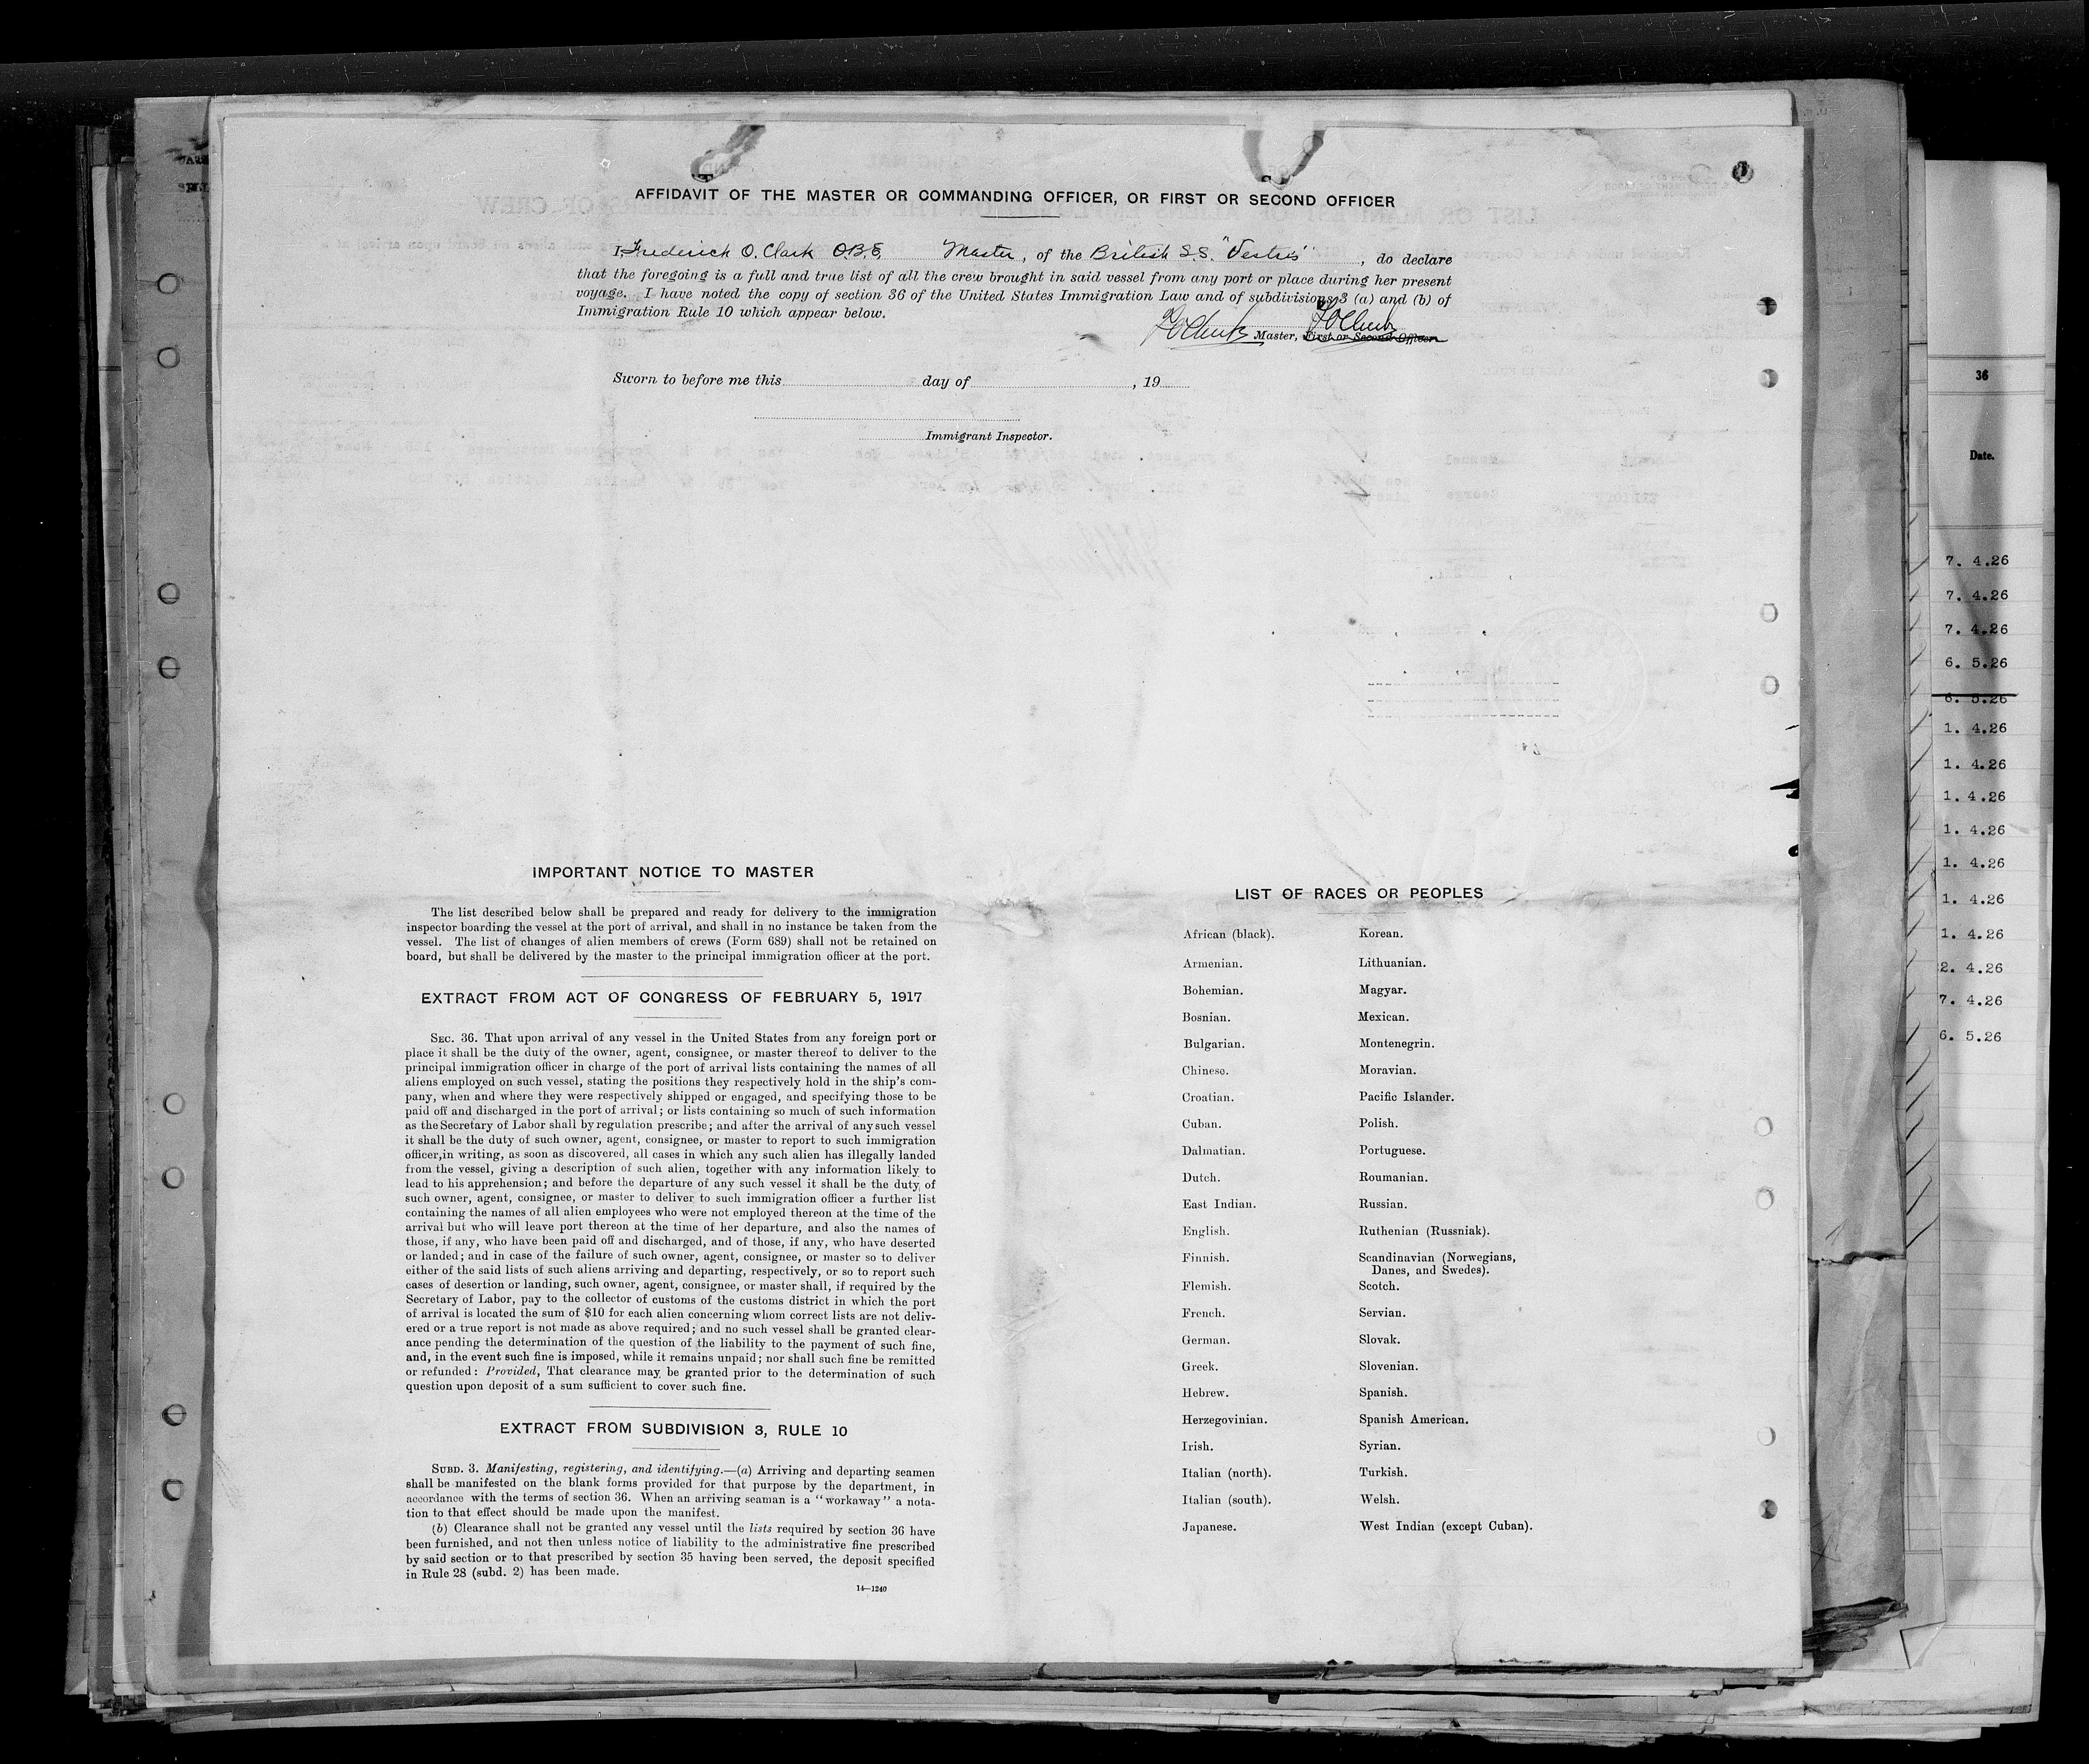 AFFIDAVIT OF THE MASTER OR COMMANDING OFFICER, OR FIRST OR SECOND OFFICER
I, Frederick O. Clark O.B.E. Master, of the British S.S. "Vestris", do declare
that the foregoing is a full and true list of all the crew brought in said vessel from any port or place during her present
voyage. I have noted the copy of section 36 of the United States Immigration Law and of subdivisions 3 (a) and (b) of
Immigration Rule 10 which appear below.
FOClark Master, First or Second Officer FOClark
Sworn to before me this day of , 19
Immigrant Inspector.
IMPORTANT NOTICE TO MASTER
The list described below shall be prepared and ready for delivery to the immigration
inspector boarding the vessel at the port of arrival, and shall in no instance be taken from the
vessel. The list of changes of alien members of crews (Form 689) shall not be retained on
board, but shall be delivered by the master to the principal immigration officer at the port.
EXTRACT FROM ACT OF CONGRESS OF FEBRUARY 5, 1917
SEC. 36. That upon arrival of any vessel in the United States from any foreign port or
place it shall be the duty of the owner, agent, consignee, or master thereof to deliver to the
principal immigration officer in charge of the port of arrival lists containing the names of all
aliens employed on such vessel, stating the positions they respectively hold in the ship's com-
pany, when and where they were respectively shipped or engaged, and specifying those to be
paid off and discharged in the port of arrival; or lists containing so much of such information
as the Secretary of Labor shall by regulation prescribe; and after the arrival of any such vessel
it shall be the duty of such owner, agent, consignee, or master to report to such immigration
officer, in writing, as soon as discovered, all cases in which any such alien has illegally landed
from the vessel, giving a description of such alien, together with any information likely to
lead to his apprehension; and before the departure of any such vessel it shall be the duty of
such owner, agent, consignee, or master to deliver to such immigration officer a further list
containing the names of all alien employees who were not employed thereon at the time of the
arrival but who will leave port thereon at the time of her departure, and also the names of
those, if any, who have been paid off and discharged, and of those, if any, who have deserted
or landed; and in case of the failure of such owner, agent, consignee, or master so to deliver
either of the said lists of such aliens arriving and departing, respectively, or so to report such
cases of desertion or landing, such owner, agent, consignee, or master shall, if required by the
Secretary of Labor, pay to the collector of customs of the customs district in which the port
of arrival is located the sum of $10 for each alien concerning whom correct lists are not deliv-
ered or a true report is not made as above required; and no such vessel shall be granted clear-
ance pending the determination of the question of the liability to the payment of such fine,
and, in the event such fine is imposed, while it remains unpaid; nor shall such fine be remitted
or refunded: Provided, That clearance may be granted prior to the determination of such
question upon deposit of a sum sufficient to cover such fine.
EXTRACT FROM SUBDIVISION 3, RULE 10
SUBD. 3. Manifesting, registering, and identifying.—(a) Arriving and departing seamen
shall be manifested on the blank forms provided for that purpose by the department, in
accordance with the terms of section 36. When an arriving seaman is a "workaway" a nota-
tion to that effect should be made upon the manifest.
(b) Clearance shall not be granted any vessel until the lists required by section 36 have
been furnished, and not then unless notice of liability to the administrative fine prescribed
by said section or to that prescribed by section 35 having been served, the deposit specified
in Rule 28 (subd. 2) has been made.
14—1240
LIST OF RACES OR PEOPLES
African (black). Korean.
Armenian. Lithuanian.
Bohemian. Magyar.
Bosnian. Mexican.
Bulgarian. Montenegrin.
Chinese. Moravian.
Croatian. Pacific Islander.
Cuban. Polish.
Dalmatian. Portuguese.
Dutch. Roumanian.
East Indian. Russian.
English. Ruthenian (Russniak).
Finnish. Scandinavian (Norwegians,
Danes, and Swedes).
Flemish. Scotch.
French. Servian.
German. Slovak.
Greek. Slovenian.
Hebrew. Spanish.
Herzegovinian. Spanish American.
Irish. Syrian.
Italian (north). Turkish.
Italian (south). Welsh.
Japanese. West Indian (except Cuban).
36
Date.
7. 4.26
7. 4.26
7. 4.26
6. 5.26
6. 5.26
1. 4.26
1. 4.26
1. 4.26
1. 4.26
1. 4.26
1. 4.26
1. 4.26
2. 4.26
7. 4.26
6. 5.26